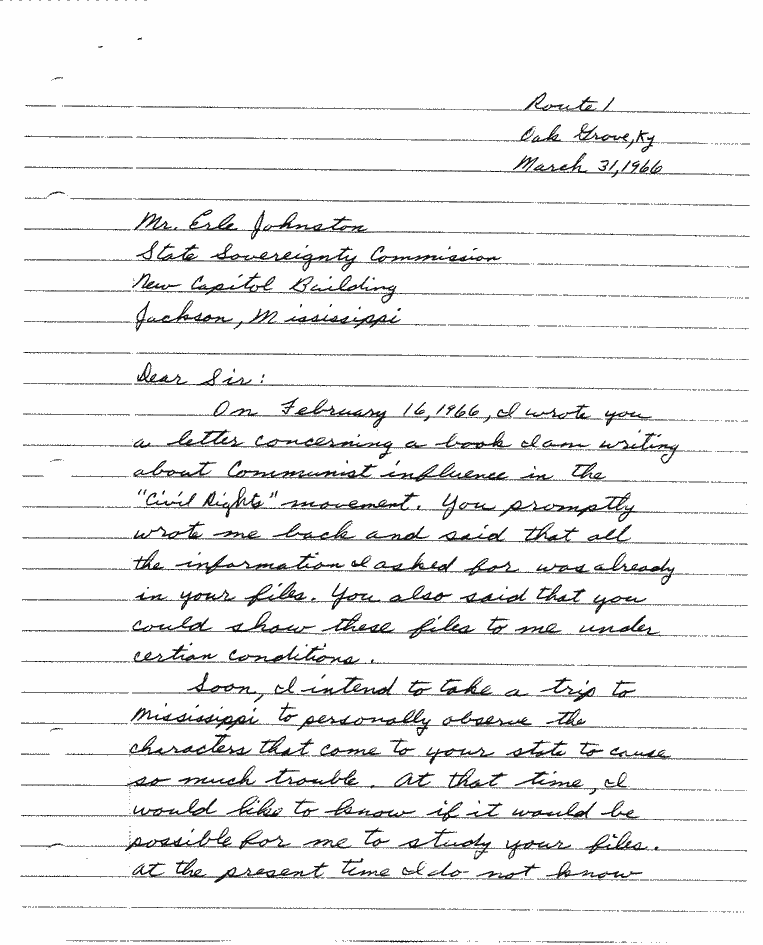 Route 1
Oak Grove, Ky
March 31, 1966
Mr. Erle Johnston
State Sovereignty Commission
New Capitol Building
Jackson, Mississippi
Dear Sir:
On February 16, 1966, I wrote you
a letter concerning a book I am writing
about Communist influence in the
"Civil Rights" movement. You promptly
wrote me back and said that all
the information I asked for was already
in your files. You also said that you
could show these files to me under
certian conditions.
Soon, I intend to take a trip to
Mississippi to personally observe the
characters that come to your state to cause
so much trouble. At that time, I
would like to know if it would be
possible for me to study your files.
At the present time I do not know